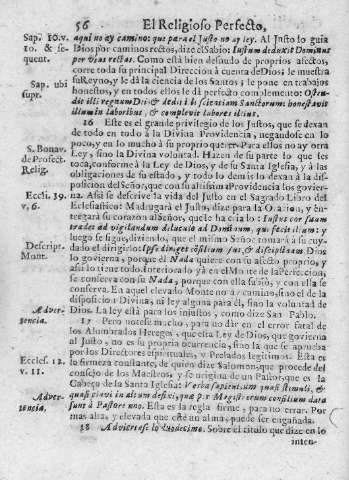 56 El Religioso Perfecto,
Sap. 10. v. 10. & sequent.
aqui no ay camino: que para el Justo no ay ley. Al Justo lo guia
Dios por caminos rectos, dize el Sabio: Iustum deduxit Dominus
per vias rectas. Como está bien desnudo de proprios afectos,
corre toda su principal Direccion à cuenta de Dios; le muestra
su Reyno, y le dà la ciencia de los Santos; le pone en trabajos
Sap. ubi supr.
honestos, y en todos ellos le dà perfecto complemento: Osten-
dit illi regnum Dei, & dedit illi scientiam Sanctorum: honestavit
illum in laboribus, & complevit labores illius.
16 Este es el grande privilegio de los Justos, que se dexan
de todo en todo à la Divina Providencia, negandose en lo
S. Bonav. de Profect. Relig.
poco, y en lo mucho à su proprio querer. Para ellos no ay otra
Ley, sino la Divina voluntad. Hazen de su parte lo que les
toca, conforme à la Ley de Dios, y de su Santa Iglesia, y à las
obligaciones de su estado, y todo lo demis lo dexan à la dis-
posicion del Señor, que con su altissima Providencia los govier-
Eccli. 39. v. 6.
na. Assi se descrive la vida del Justo en el Sagrado Libro del
Eclesiastico: Madrugarà el Justo, dize para la Oracion, y en-
tregarà su corazon al Señor, que le ha criado: Iustus cor suum
tradet ad vigilandum diluculo ad Dominum, qui fecit illum; y
luego se sigue, diziendo, que el mismo Señor tomarà à su cuy-
Descript. Mont.
dado el dirigirlo: Ipse diriget consilium ejus, & disciplinam. Dios
lo govierna, porque el Nada quiere con su afecto proprio, y
assi lo tiene todo. Interiorizado yà en el Monte de la Perfeccion,
se conserva con su Nada, porque con ella subiò, y con ella se
conserva. En aquel elevado Monte no ay camino, sino el de la
disposicion Divina, ni ley alguna para èl, sino la voluntad de
Adver- tencia.
Dios. La ley està para los injustos, como dize San Pablo.
17 Pero notese mucho, para no dar en el error fatal de
los Alumbrados Hereges, que esta Ley de Dios, que govierna
al Justo, no es su propria ocurrencia, sino la que se aprueba
por los Directores espirituales, y Prelados legitimos. Esta es
Eccles. 12. v. 11.
la firmeza constante, de quien dize Salomon, que procede del
consejo de los Maestros, y se origina de un Pastor, que es la
Cabeça de la Santa Iglesia: Verba sapientium quasi stimuli, &
Adver- tencia.
quasi clavi in altum defixi, quæ per Magistrorum consilium data
sunt à Pastore uno. Esta es la regla firme, para no errar. Por
mas alta, y elevada que estè un alma, puede ser engañada.
18 Adviertase lo duodecimo. Sobre el titulo que dize en lo
inten-